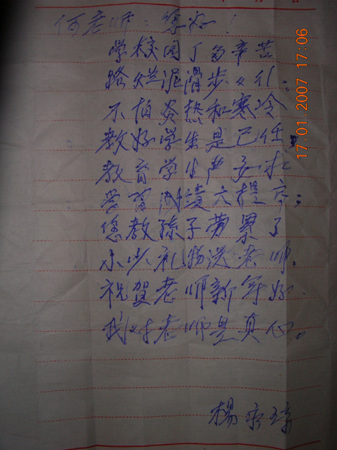 何老师:您好!
学校因丁多辛苦
路烂泥滑步々行;
不怕炎热和寒冷
教好学生是己任;
教育学生严要求
您教孩子劳累了
小少礼物送老师,
祝贺老师新年好
我对老师是真心。
楊
17.01.2007 17:06